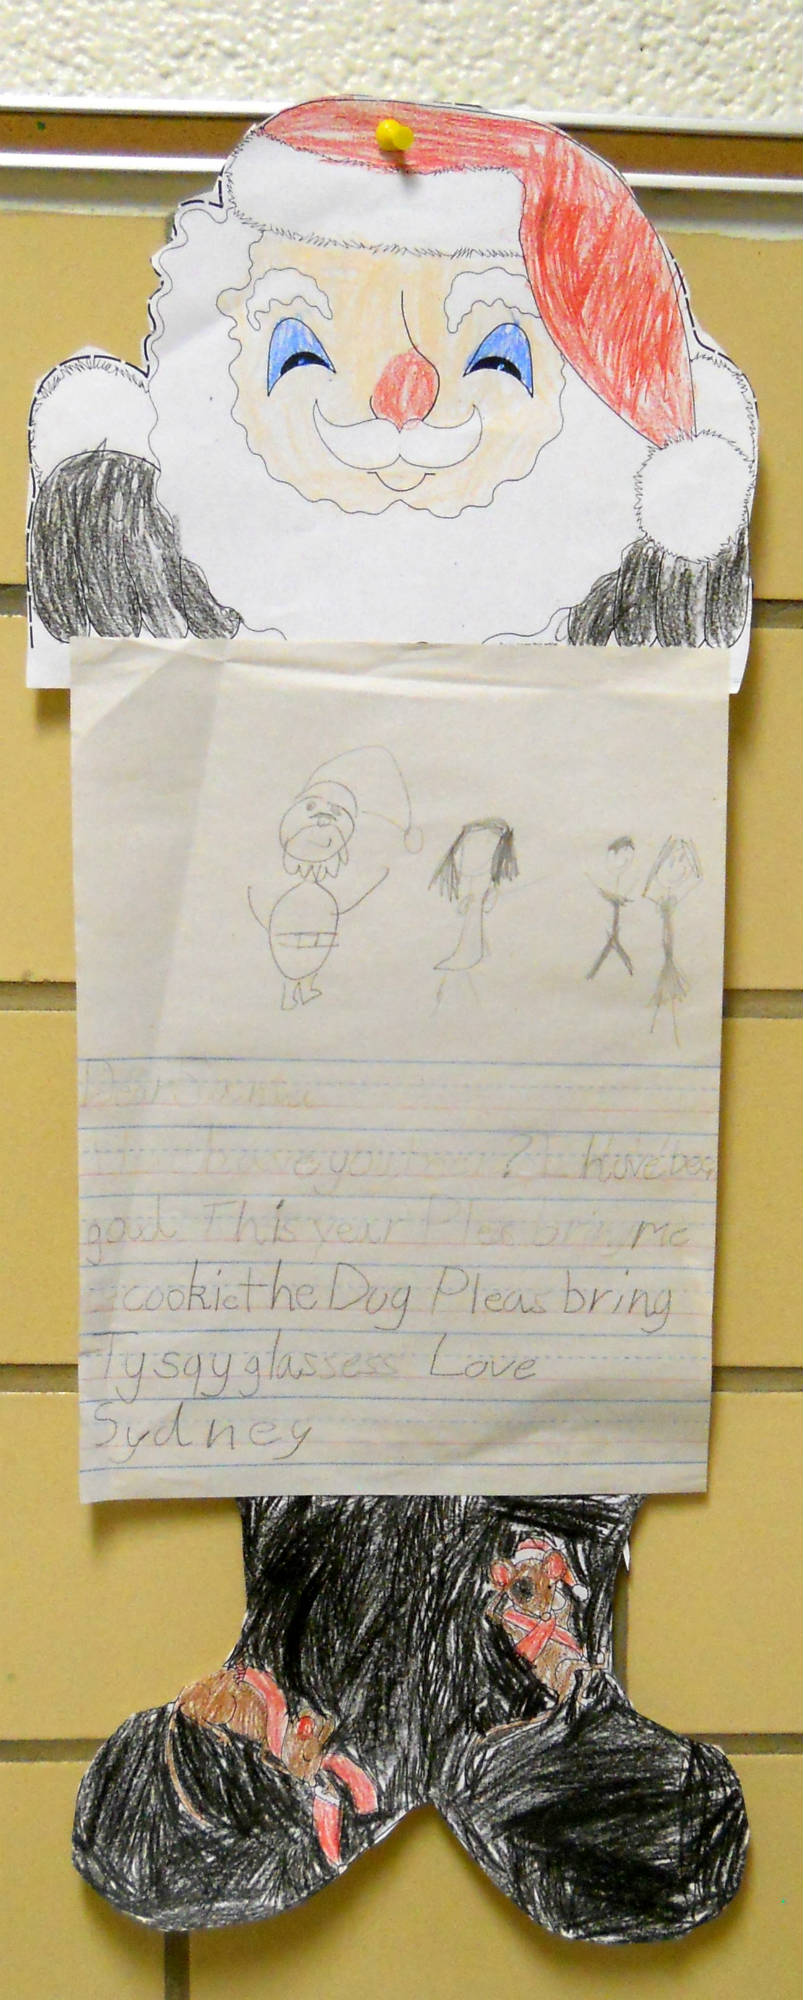 Dear Santa
have you ? I have bee
good This year Ples bring me
cookie the Dog Pleas bring
Ty sqy glassess Love
Sydney